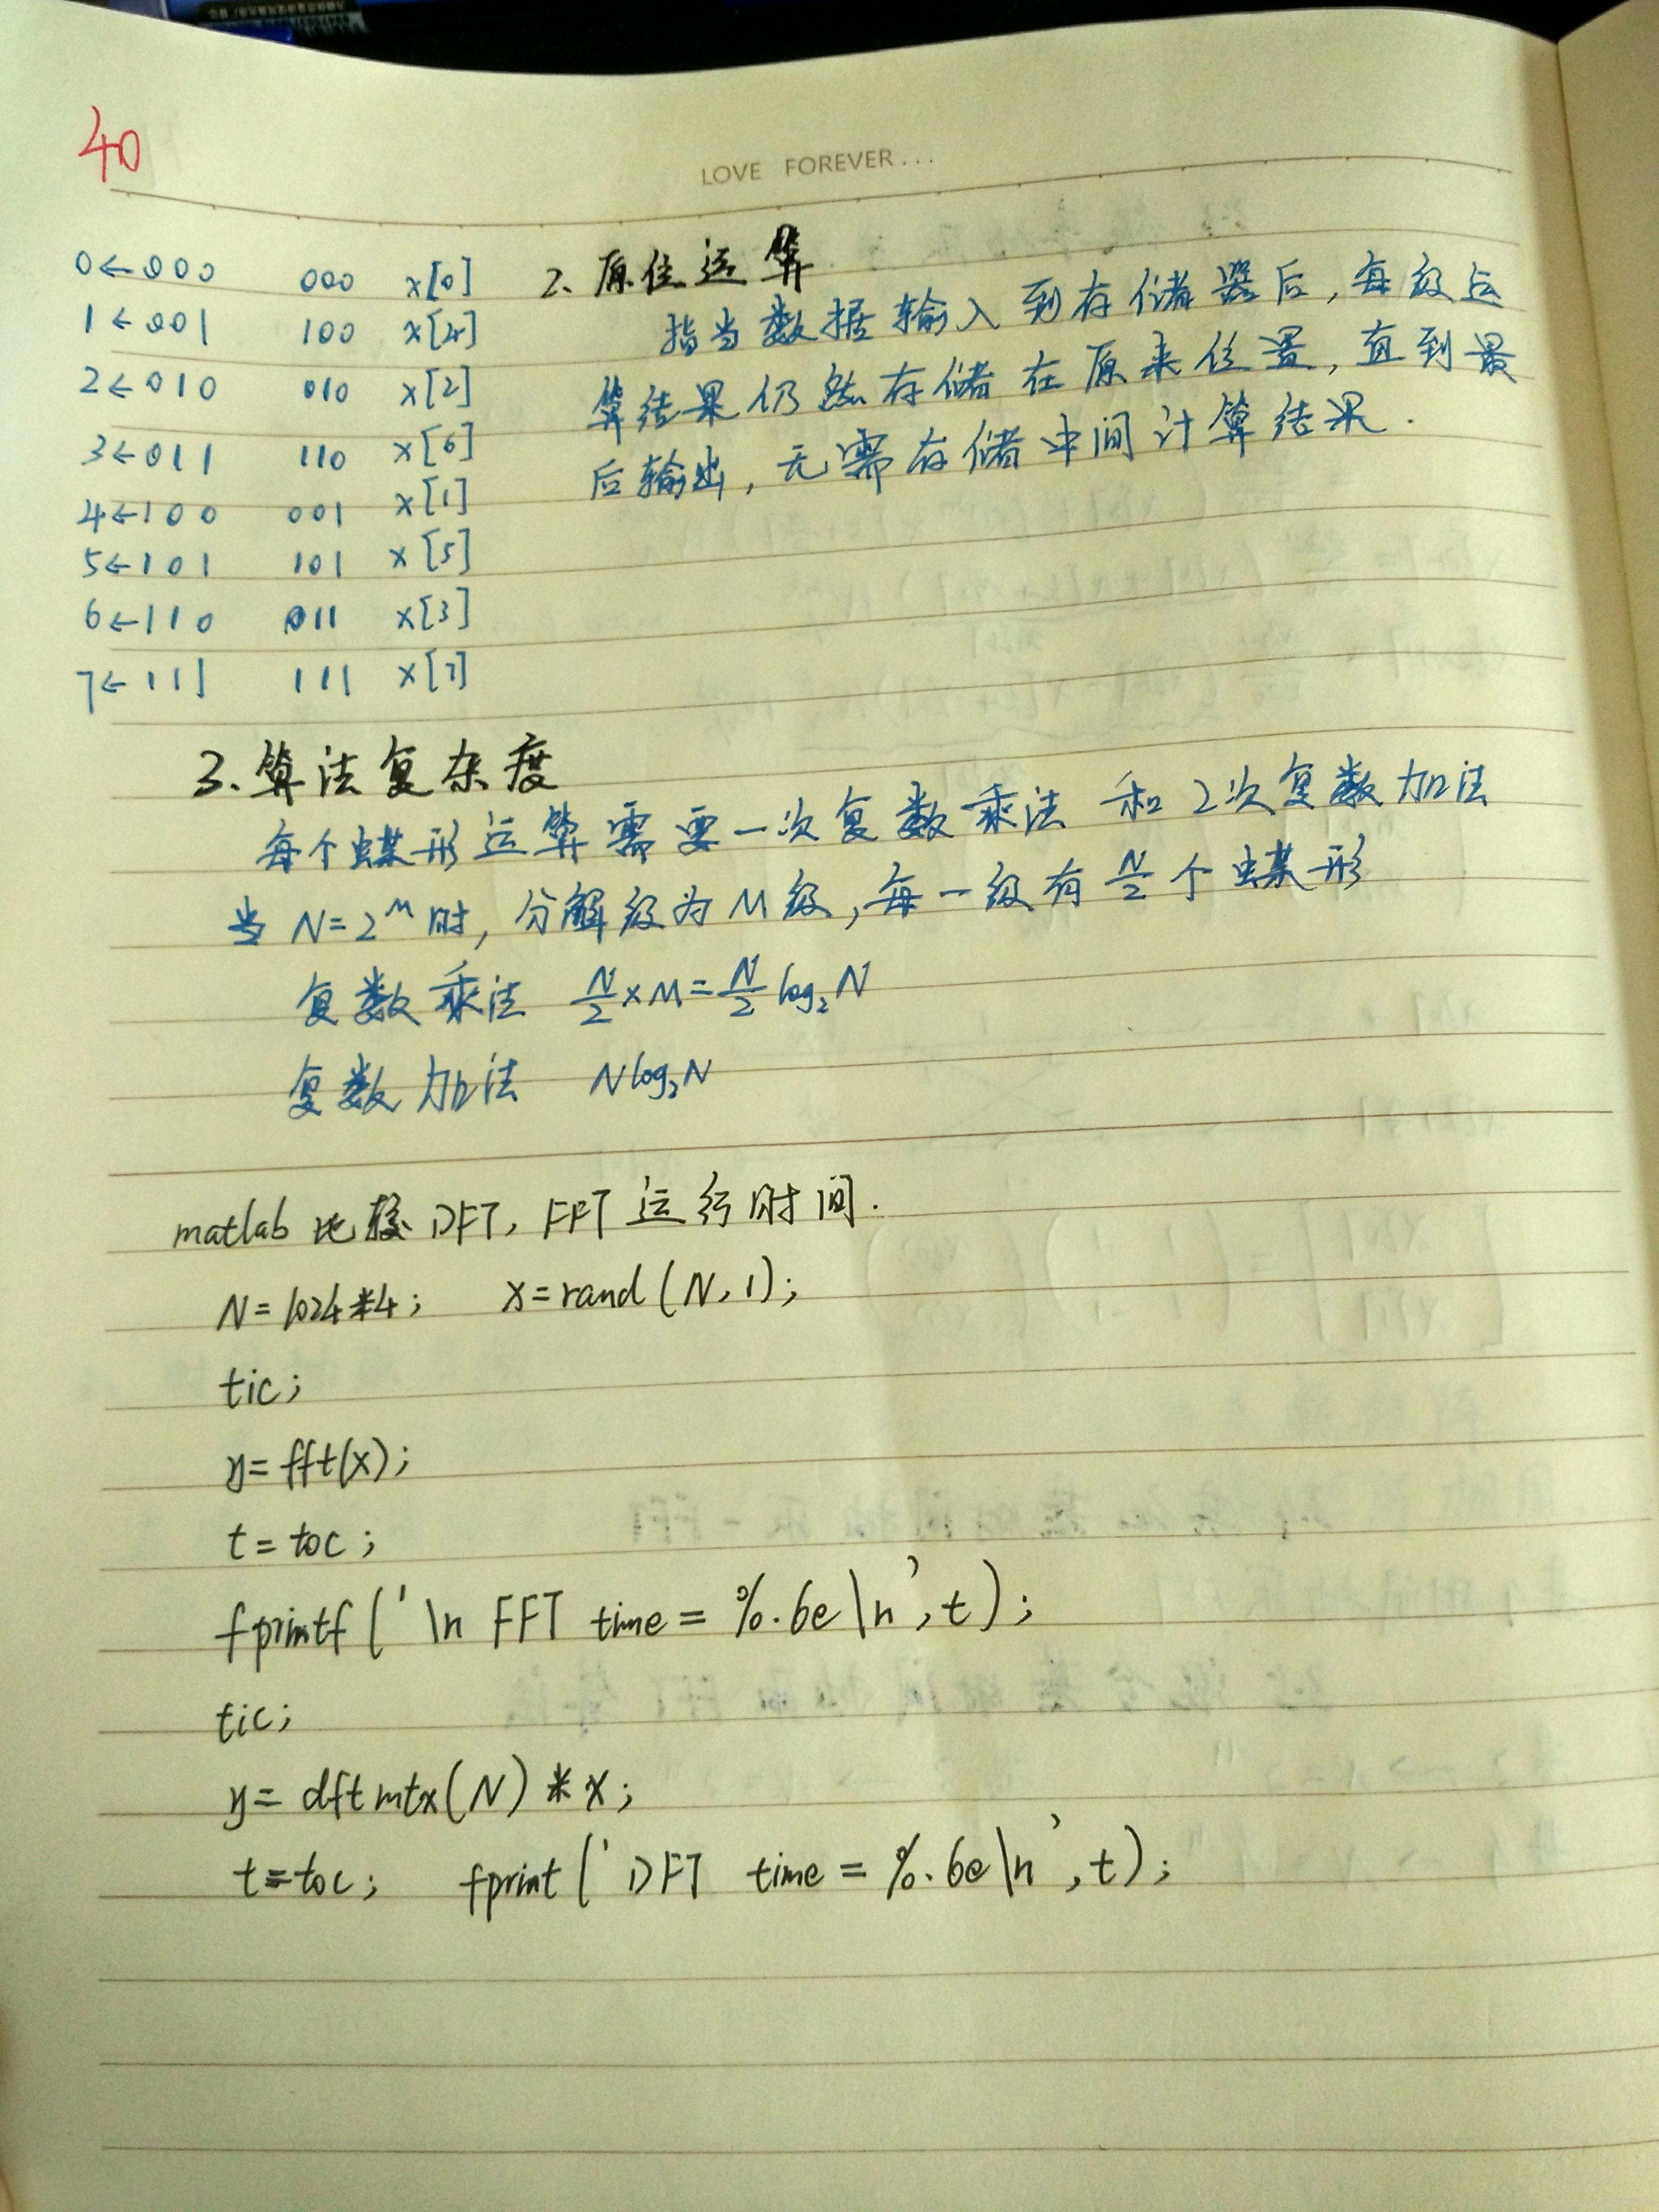 40
LOVE FOREVER...
0←000 000 x[0]
1←001 100 x[4]
2←010 010 x[2]
3←011 110 x[6]
4←100 001 x[1]
5←101 101 x[5]
6←110 011 x[3]
7←111 111 x[7]
2、原位运算
指当数据输入到存储器后,每级运
算结果仍然存储在原来位置,直到最
后输出,无需存储中间计算结果.
3、算法复杂度
每个蝶形运算需要一次复数乘法 和2次复数加法
当 N=2^M时,分解级为M级,每一级有 N/2 个蝶形
复数乘法 N/2×M=N/2 log₂N
复数加法 Nlog₂N
matlab 比较 DFT, FFT 运行时间.
N=1024*4; x=rand(N,1);
tic;
y=fft(x);
t=toc;
fprintf('\n FFT time=%.6e\n',t);
tic;
y=dftmtx(N)*x;
t=toc; fprint('DFT time=%.6e\n',t);